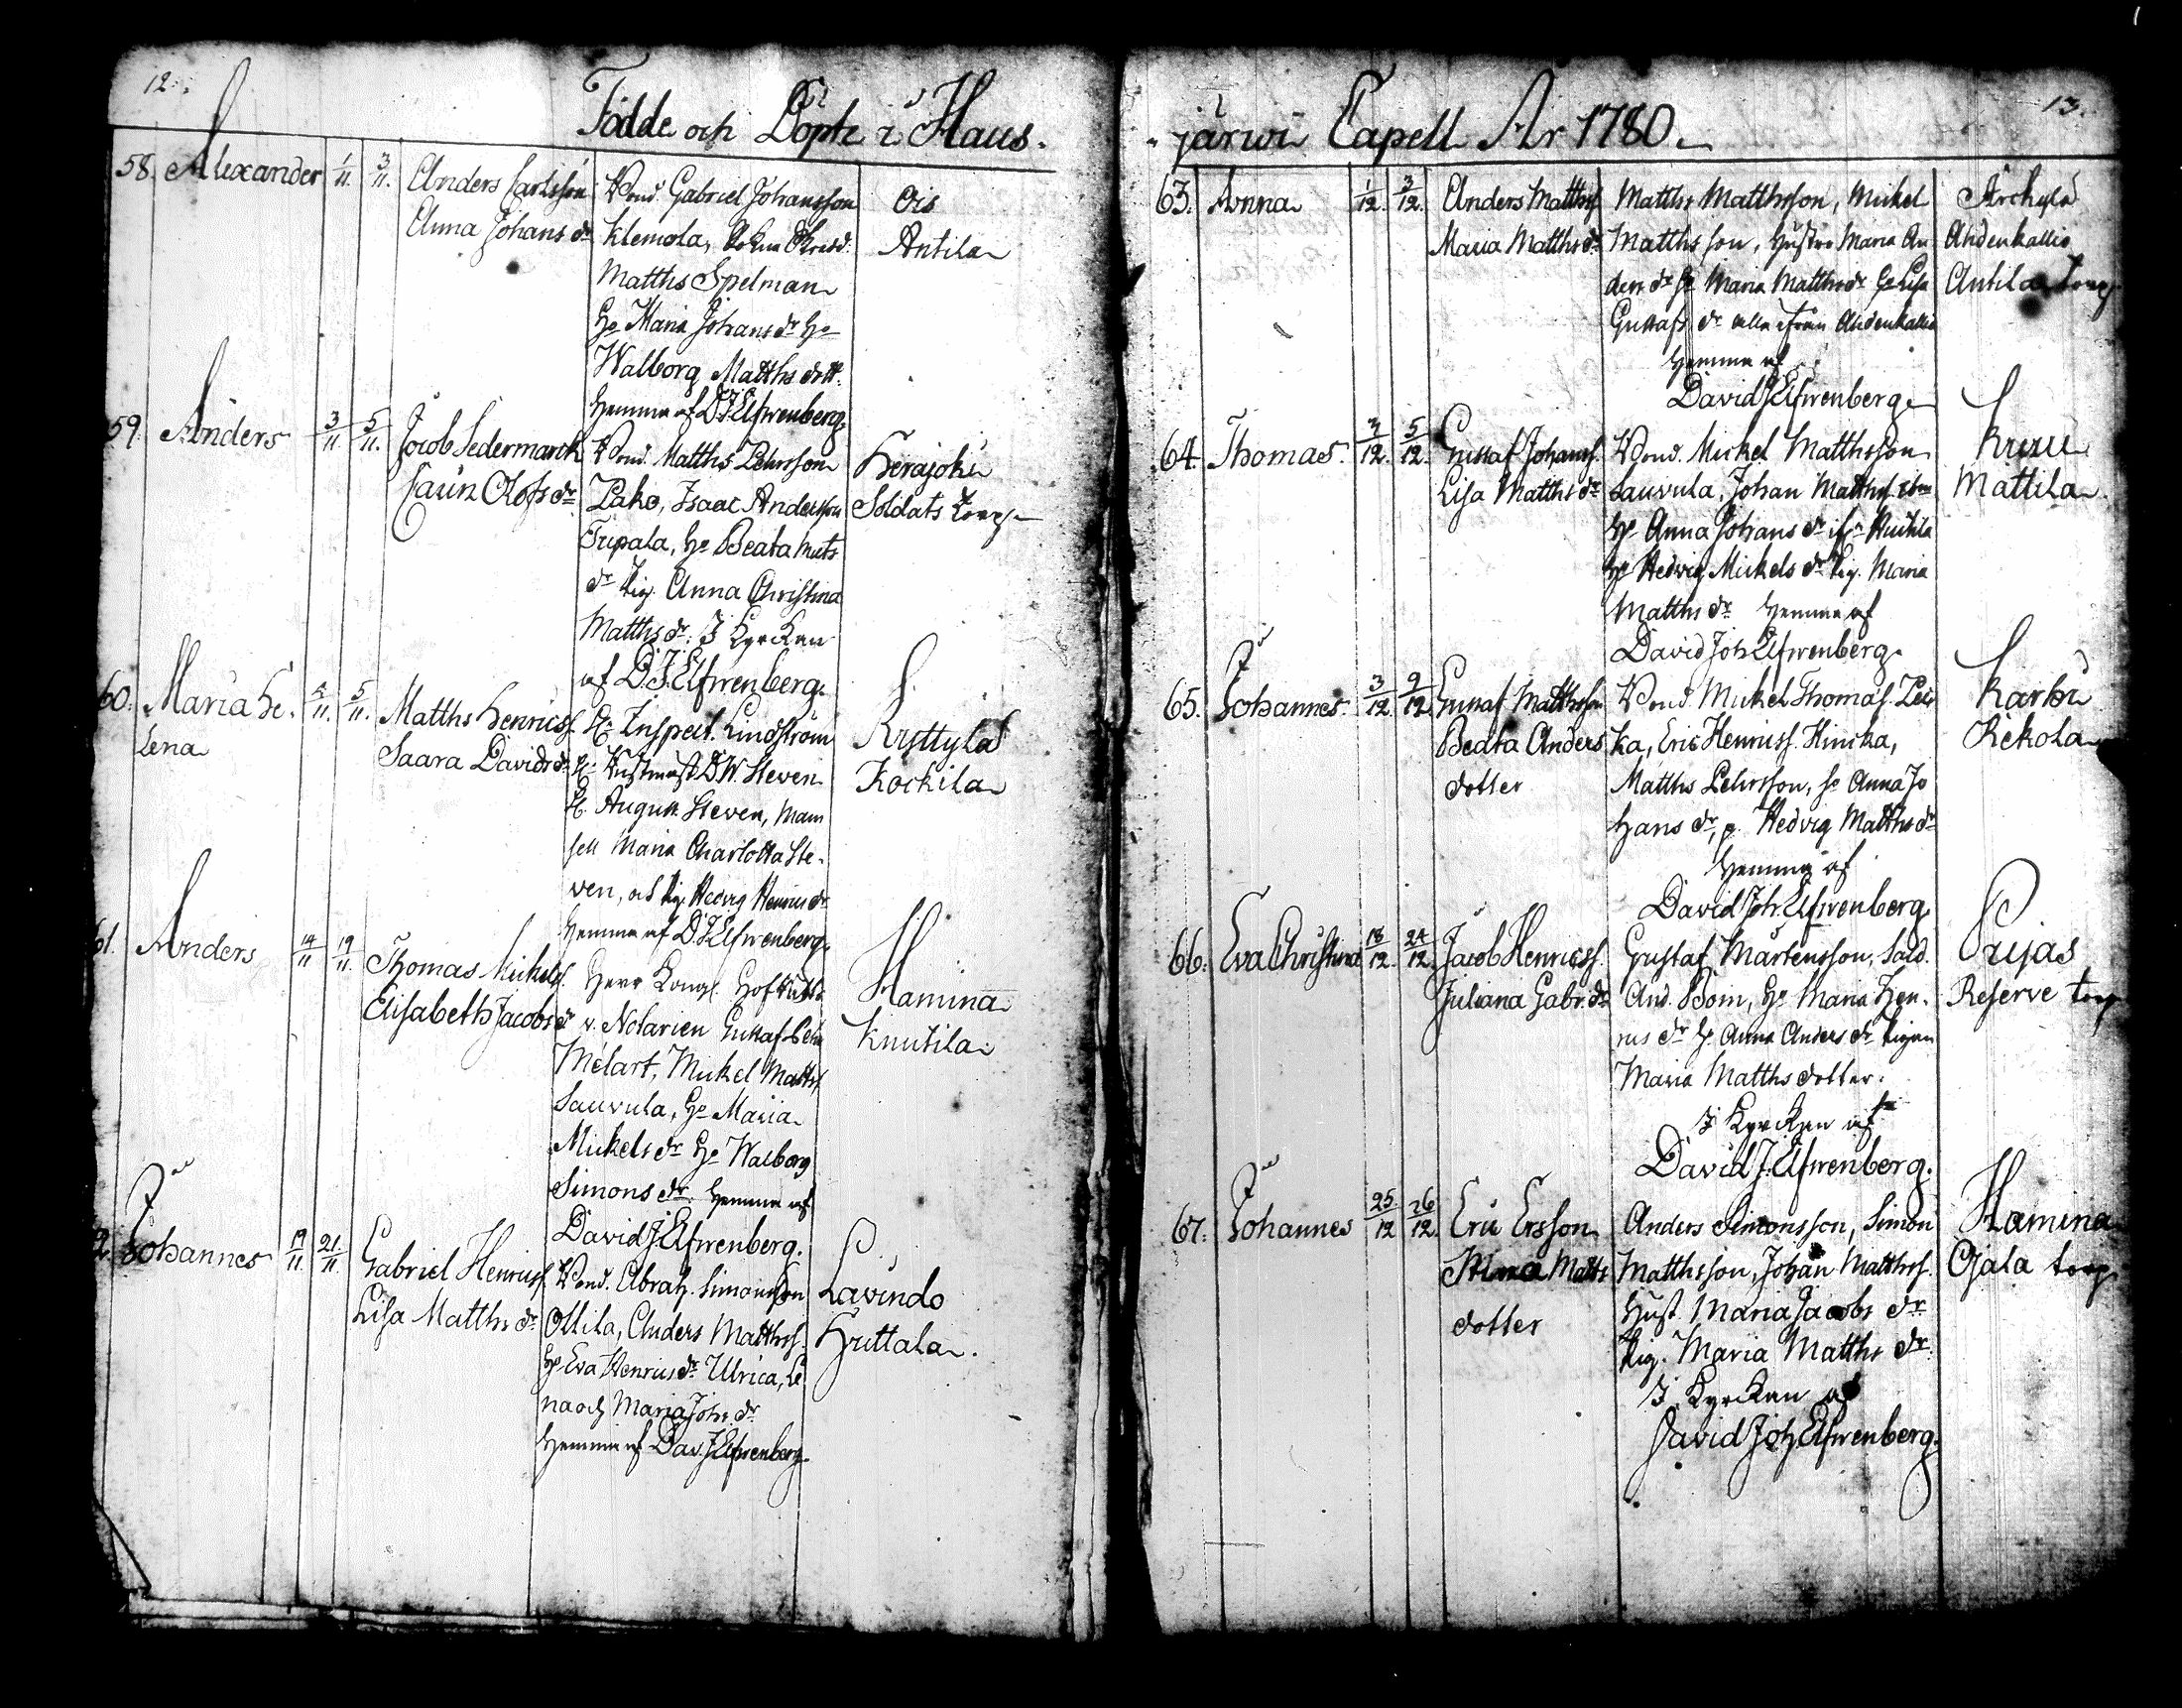 12.
Födde och Döpte i Haus-
58. Alexander 1/11. 3/11.
Anders Carlsson
Anna Johans dr
Bond. Gabriel Johansson
Klemola,
Matths Spelman
Ho Maria Johans dr Ho
Walborg Matths dott.
Hemma af D.J. Elfwenberg.
Ois
Antila
59. Anders 3/11. 5/11.
Jacob Sedermarck
Carin Olofs dr
Bond. Matths Pehrsson
Pako, Isaac Andersson
Tripala, Ho Beata Mats
dr Pig. Anna Christina
Matths dr. I Kyrckan
af D.J. Elfwenberg.
Herajoki
Soldats torp
60. Maria He- 4/11. 5/11.
lena
Matths Henricss.
Saara Davids dr
Hr Inspect. Lindström
Hr D.W. Steven
H. August. Steven, Mam
sell Maria Charlotta Ste-
ven, och Pig. Hedvig Henrics dr
Hemma af D.J. Elfwenberg.
Ryttylä
Kockila
61. Anders 14/11 19/11.
Thomas Mickelss.
Elisabeth Jacobs dr
Herr Kongl. Hof Rätts
v. Notarien Gustaf Pehr
Melart, Mickel Mattss.
Sauvula, Ho Maria
Mickels dr Ho Walborg
Simons dr. Hemma af
David J. Elfwenberg.
Hamina
Knutila
2. Johannes 19/11. 21/11.
Gabriel Henricss.
Lisa Matths dr
Bond. Abrah. Simonsson
Ollila, Anders Matthss.
Ho Eva Henrics dr Ulrica, Le
na och Maria Johs. dr
Hemma af Dav. J. Elfwenberg.
Lavindo
Huttala.
13.
-järwi Capell År 1780.
63. Anna 1/12. 3/12.
Anders Matthss
Maria Matths dr
Matths Matthsson, Mickel
Matthsson, Hustro Maria An
ders dr Ho Maria Matths dr Ho Lisa
Gustafs dr alla ifrån Ahdenkallio
Hemma af
David J. Elfwenberg
Ärckylä
Ahdenkallio
Antila torp
64. Thomas. 5/12.
Gustaf Johanss.
Lisa Matths dr
Bond. Mickel Matthsson
Sauvula, Johan Matthss.
Ho Anna Johans dr
Ho Hedvig Mickels dr Pig. Maria
Matths dr Hemma af
David Joh Elfwenberg.
Kruu
Mattila.
65. Johannes 3/12. 9/12.
Gustaf Matthsson
Beata Anders
dotter
Bond. Mickel Thomass.
ka, Eric Henricss. Hincka,
Matths Pehrsson, Ho Anna Jo
hans dr, p. Hedvig Matths dr
Hemma af
David Joh. Elfwenberg.
Karhi
Kekola
66. Eva Christina 18/12. 24/12.
Jacob Henricss.
Juliana Gabr. dr
Gustaf Mårtensson, Sold.
And. Bom, Ho Maria Hen-
rics dr Ho Anna Anders dr Pigan
Maria Matths dotter.
I Kyrckan af
David J. Elfwenberg.
Prijas
Reserve torp
67. Johannes 25/12 26/12.
Eric Ersson
Matts
dotter
Anders Simonsson, Simon
Matthsson, Johan Matthss.
Hust. Maria Jacobs dr
Pig. Maria Matths dr.
I Kyrckan af
David Joh Elfwenberg.
Hamina
Ojala torp